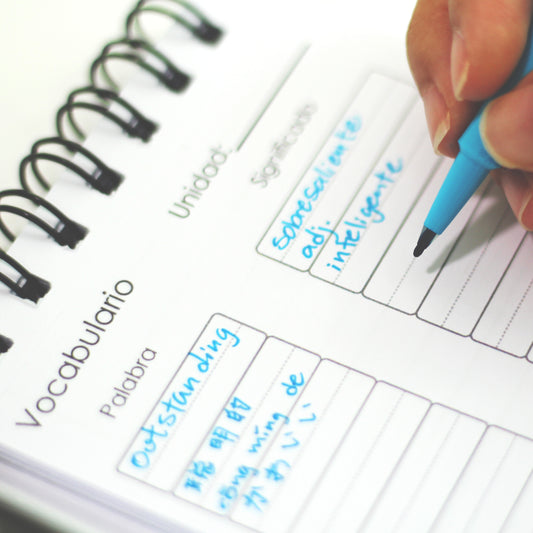 Vocabulario
Unidad:
Palabra
Significado
Outstanding
sobresaliente
adj.
聪明的
cōng míng de
inteligente
かわいい